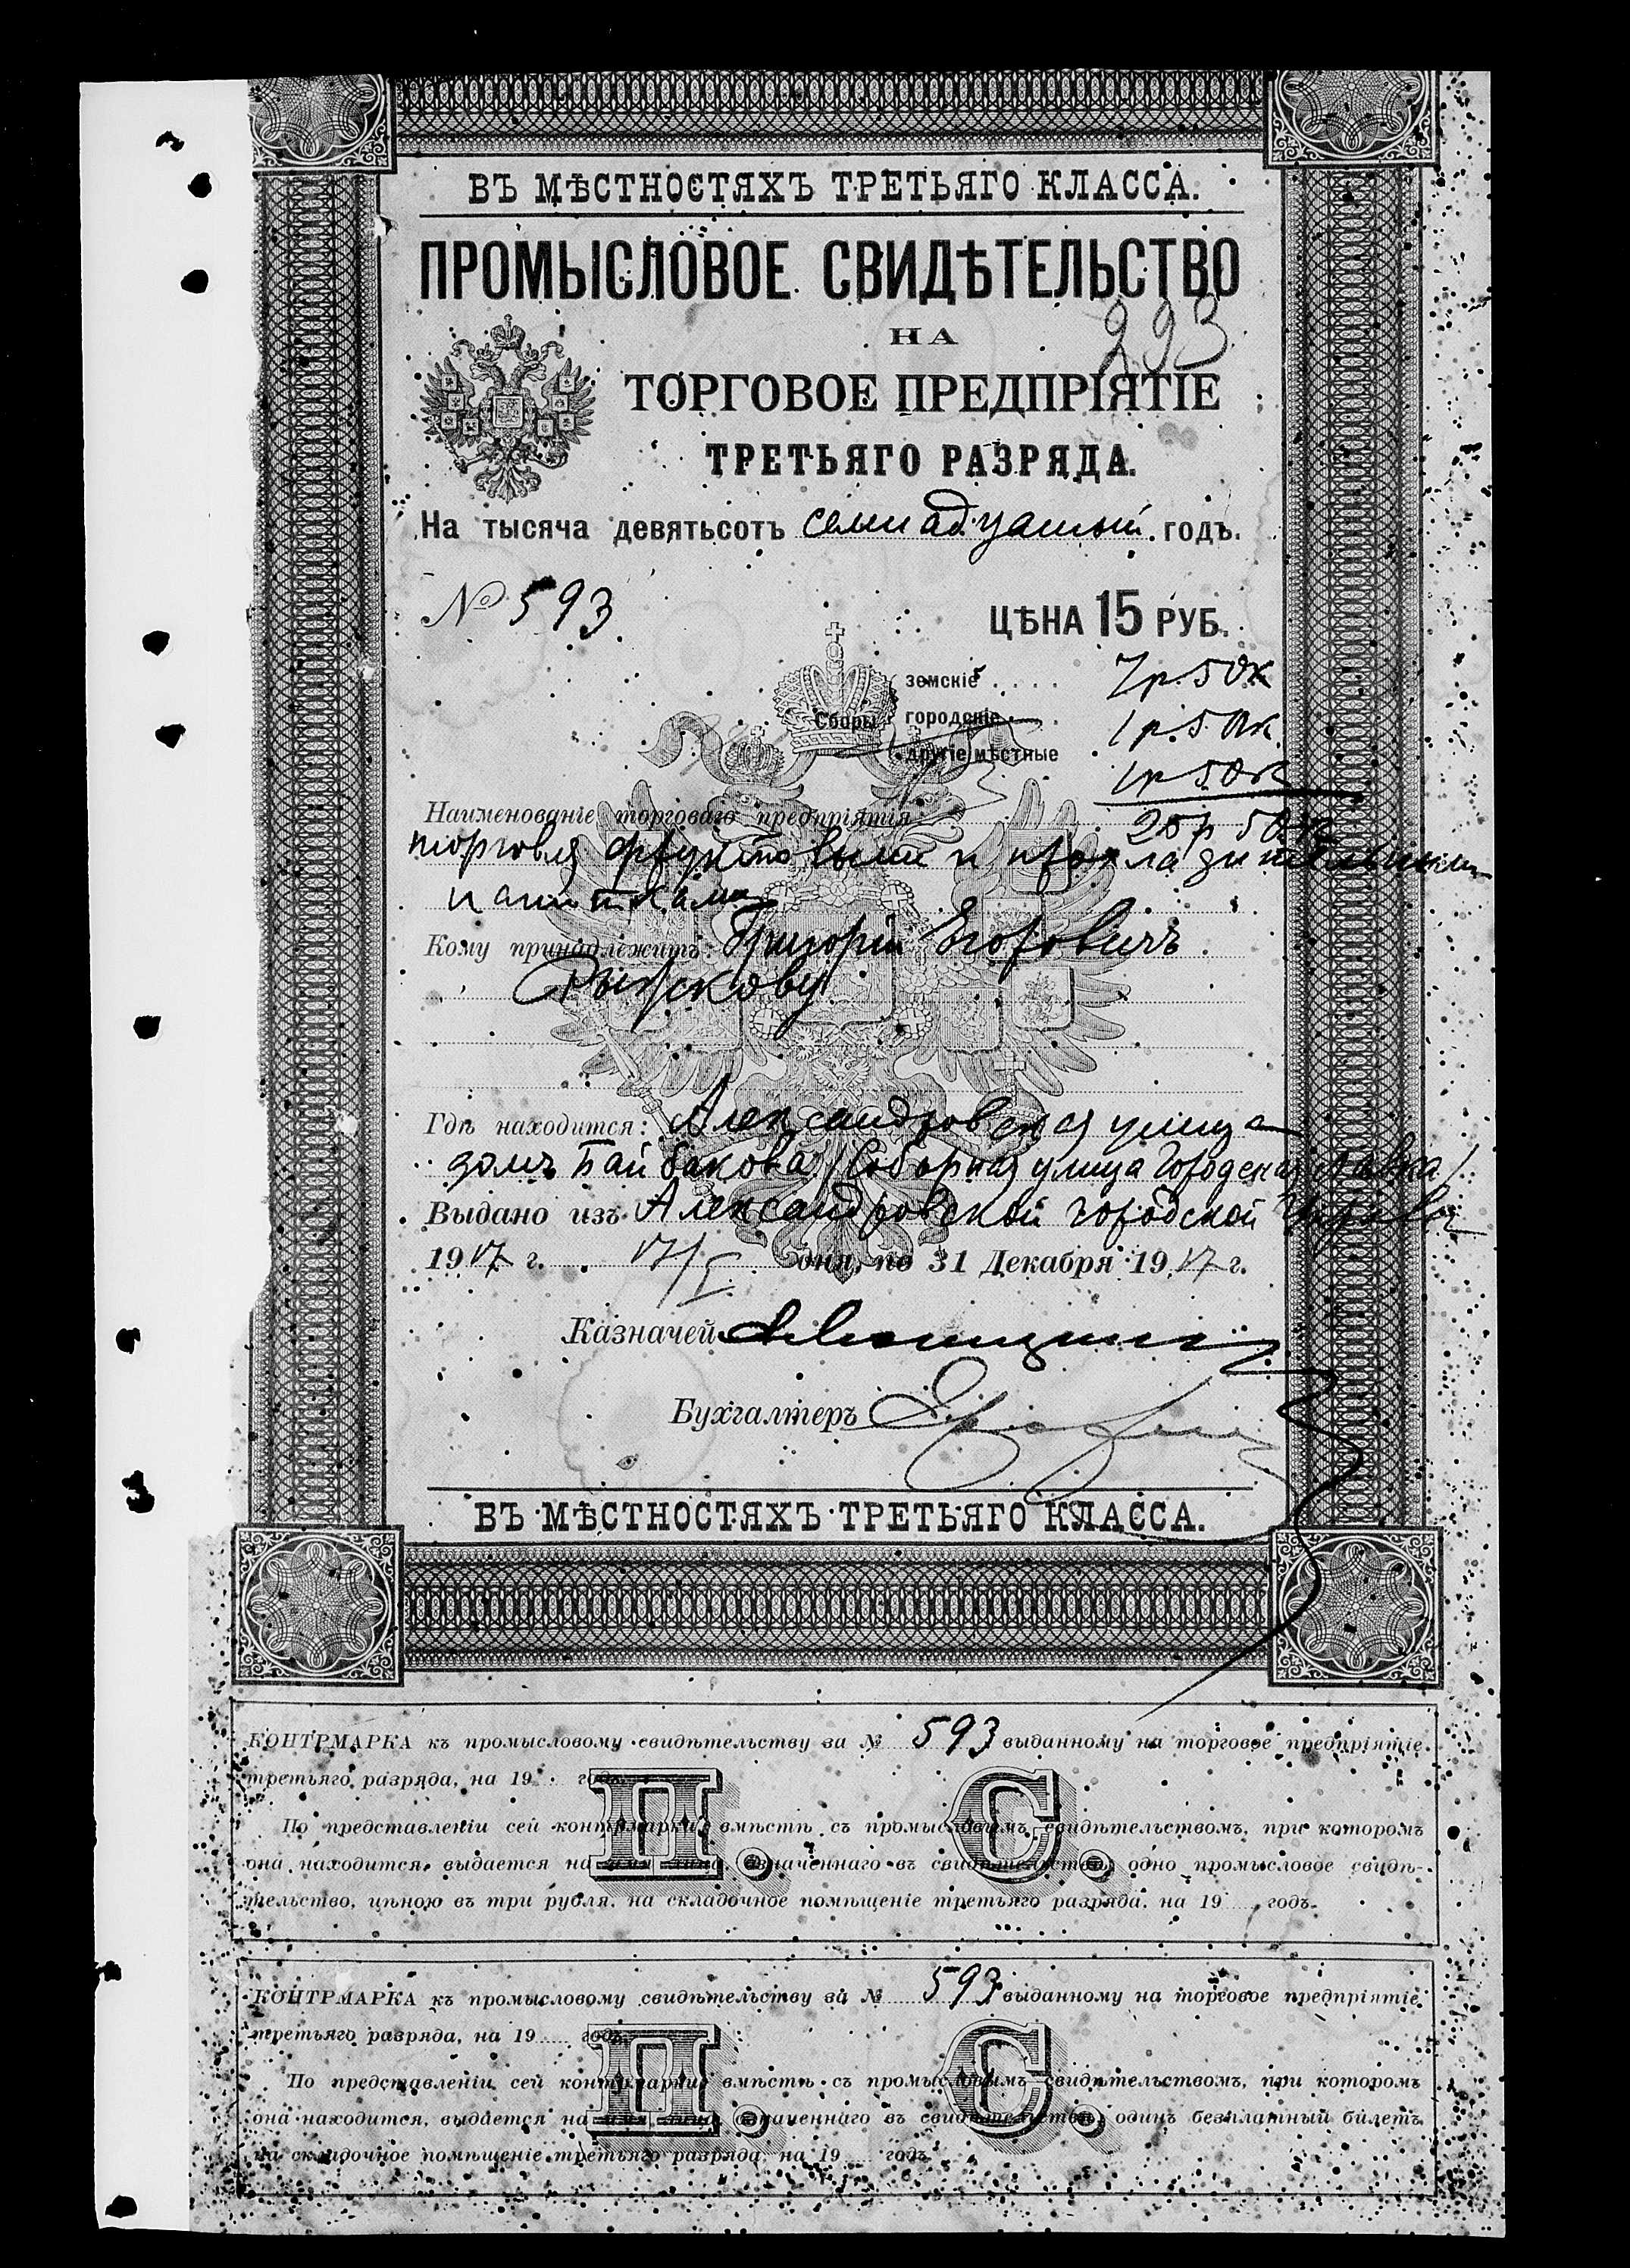 ВЪ МѢСТНОСТЯХЪ ТРЕТЬЯГО КЛАССА.
ПРОМЫСЛОВОЕ СВИДѢТЕЛЬСТВО
293
НА
ТОРГОВОЕ ПРЕДПРІЯТІЕ
ТРЕТЬЯГО РАЗРЯДА.
На тысяча девятьсотъ семнадцатый годъ.
№ 593
ЦѢНА 15 РУБ.
земскіе 7 р. 50 к
Сборы городскіе 1 р. 50 к.
другіе мѣстные 1 р 50 к
Наименованіе торговаго предпріятія: 25 р 50 к
торговля фруктовыми и прохладительными
напитками
Кому принадлежитъ: Григорій Егоровичъ
Рыжкову
Гдѣ находится: Александровская улица
домъ Байбакова /Соборная улица Городская лавка/
Выдано изъ Александровской городской Управы
1917 г. 17/I дня, по 31 Декабря 1917 г.
Казначей
Бухгалтеръ
ВЪ МѢСТНОСТЯХЪ ТРЕТЬЯГО КЛАССА.
КОНТРМАРКА къ промысловому свидѣтельству за № 593 выданному на торговое предпріятіе
третьяго разряда, на 19 годъ.
П. С.
По представленіи сей контрмарки, вмѣстѣ съ промысловымъ свидѣтельствомъ, при которомъ
она находится, выдается на имя лица, означеннаго въ свидѣтельствѣ, одно промысловое свидѣ-
тельство, цѣною въ три рубля, на складочное помѣщеніе третьяго разряда, на 19 годъ.
КОНТРМАРКА къ промысловому свидѣтельству за № 593 выданному на торговое предпріятіе
третьяго разряда, на 19 годъ.
П. С.
По представленіи сей контрмарки, вмѣстѣ съ промысловымъ свидѣтельствомъ, при которомъ
она находится, выдается на имя лица, означеннаго въ свидѣтельствѣ, одинъ безплатный билетъ
на складочное помѣщеніе третьяго разряда на 19 годъ.